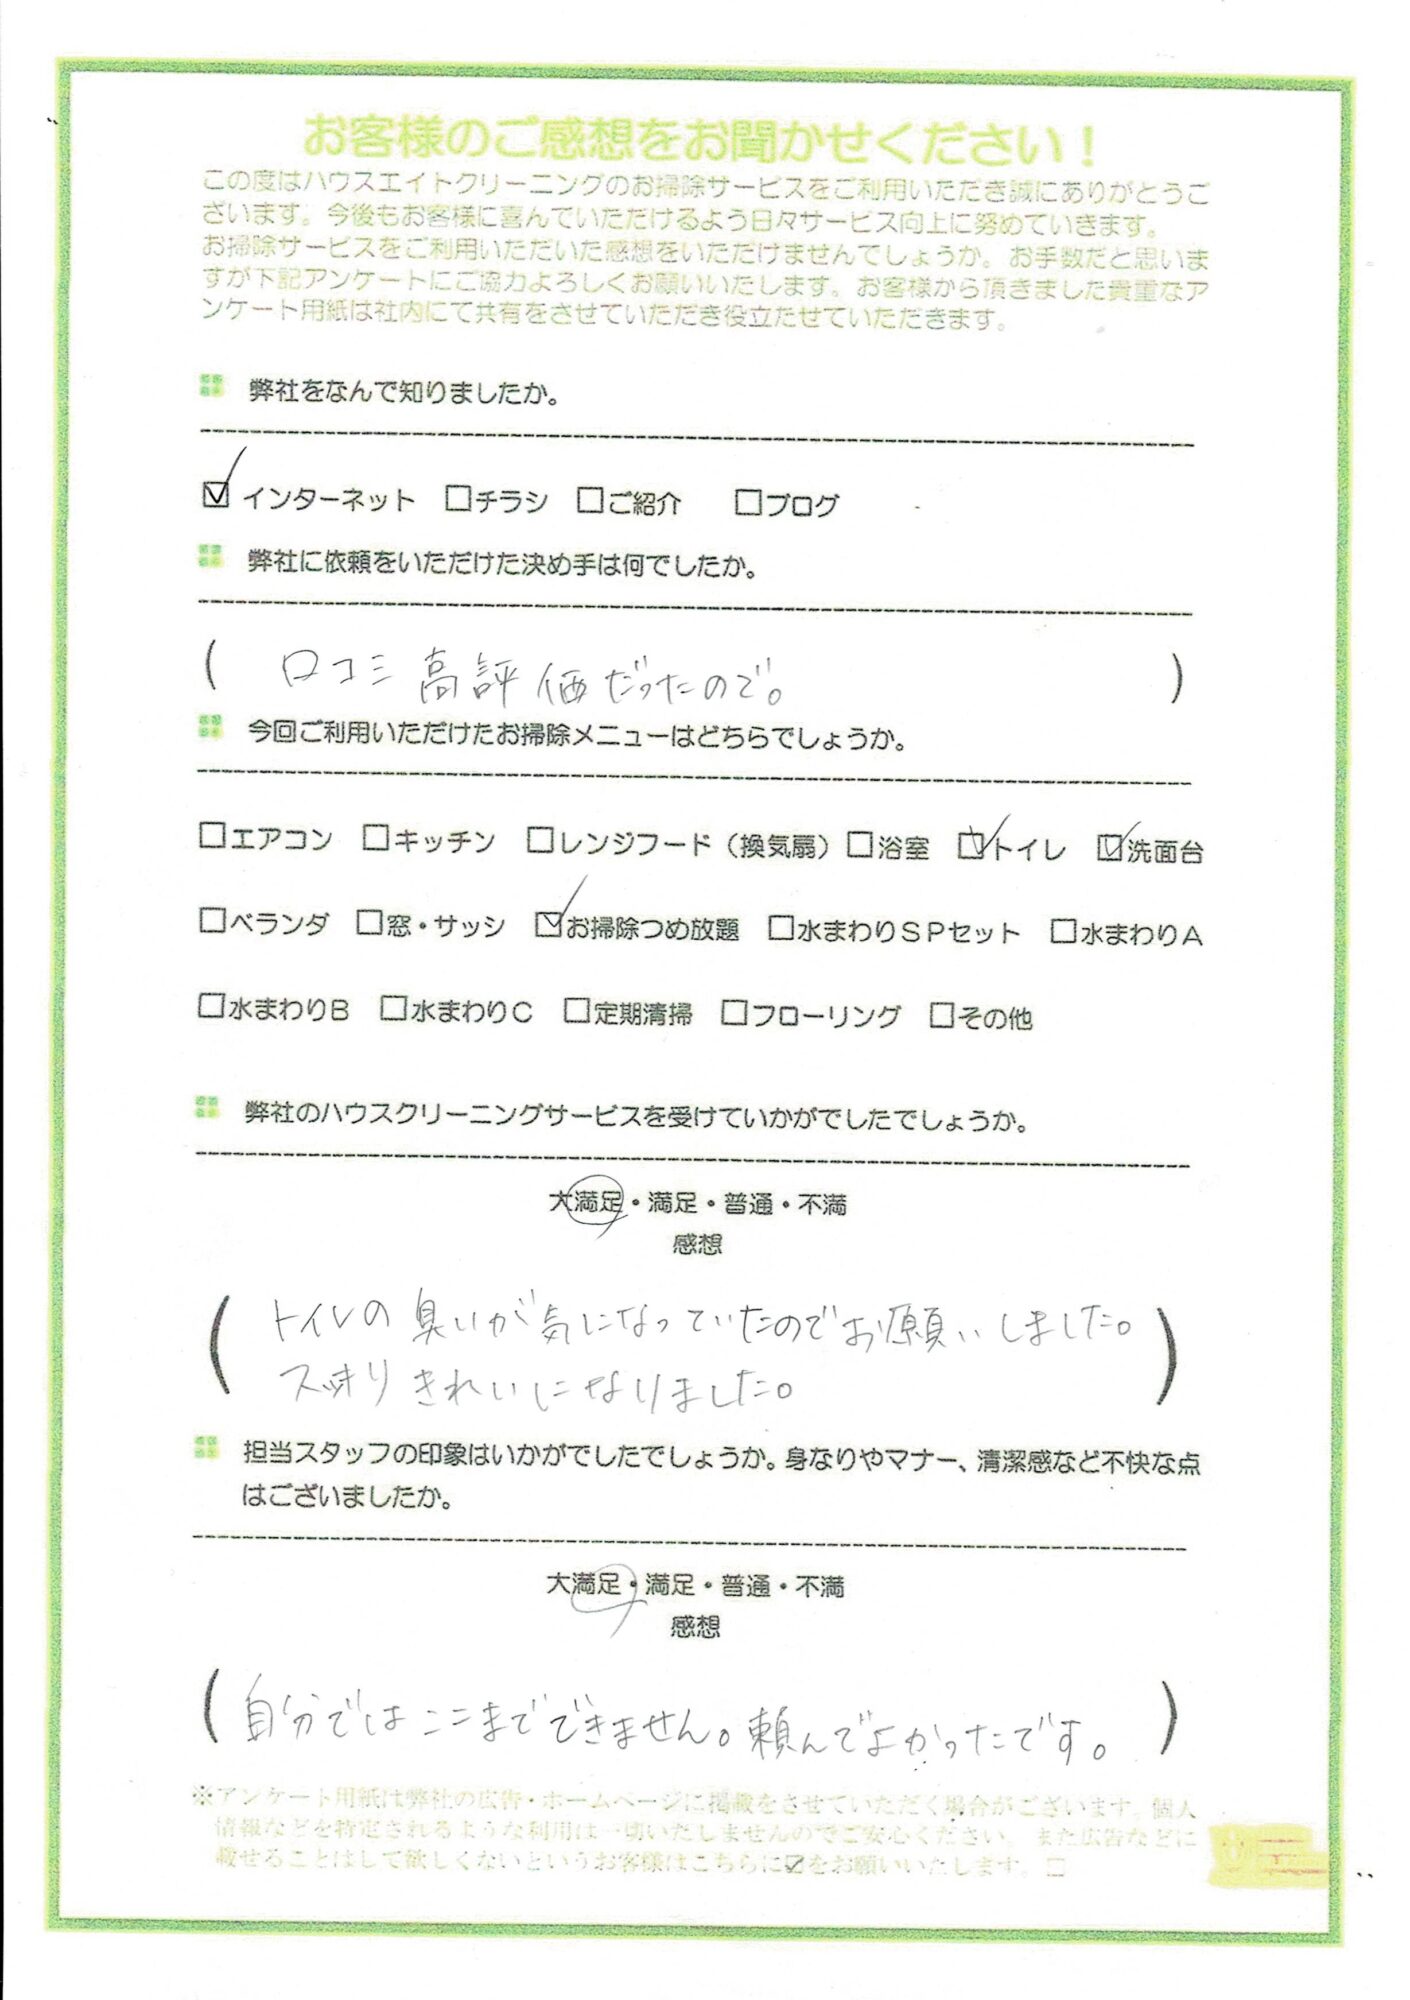 お客様のご感想をお聞かせください！
この度はハウスエイトクリーニングのお掃除サービスをご利用いただき誠にありがとうご
ざいます。今後もお客様に喜んでいただけるよう日々サービス向上に努めていきます。
お掃除サービスをご利用いただいた感想をいただけませんでしょうか。お手数だと思いま
すが下記アンケートにご協力よろしくお願いいたします。お客様から頂きました貴重なア
ンケート用紙は社内にて共有をさせていただき役立たせていただきます。
弊社をなんで知りましたか。
☑インターネット □チラシ □ご紹介 □ブログ
弊社に依頼をいただけた決め手は何でしたか。
（ 口コミ高評価だったので。 ）
今回ご利用いただけたお掃除メニューはどちらでしょうか。
□エアコン □キッチン □レンジフード（換気扇）□浴室 ☑トイレ ☑洗面台
□ベランダ □窓・サッシ ☑お掃除つめ放題 □水まわりＳＰセット □水まわりＡ
□水まわりＢ □水まわりＣ □定期清掃 □フローリング □その他
弊社のハウスクリーニングサービスを受けていかがでしたでしょうか。
大満足・満足・普通・不満
感想
（ トイレの臭いが気になっていたのでお願いしました。
きれいになりました。 ）
担当スタッフの印象はいかがでしたでしょうか。身なりやマナー、清潔感など不快な点
はございましたか。
大満足・満足・普通・不満
感想
（ 自分ではここまでできません。頼んでよかったです。 ）
※アンケート用紙は弊社の広告・ホームページに掲載をさせていただく場合がございます。個人
情報などを特定されるような利用は一切いたしませんのでご安心ください。また広告などに
載せることはして欲しくないというお客様はこちらに☑をお願いいたします。□